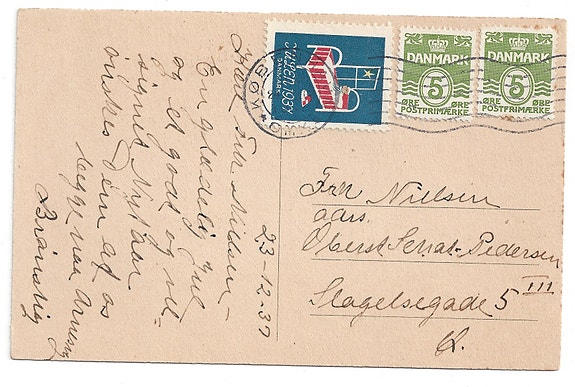 JULEN 1937
DANMARK
KØB
DANMARK
5
ØRE ØRE
POSTFRIMÆRKE
DANMARK
5
ØRE ØRE
POSTFRIMÆRKE
23-12-37
Kære Frk Nielsen
En glædelig Jul
og et godt og vel-
signet Nytaar
ønskes Dem af os
begge
Frk Nielsen
adrs.
Oberst Pedersen
Slagelsegade 5 III
K.